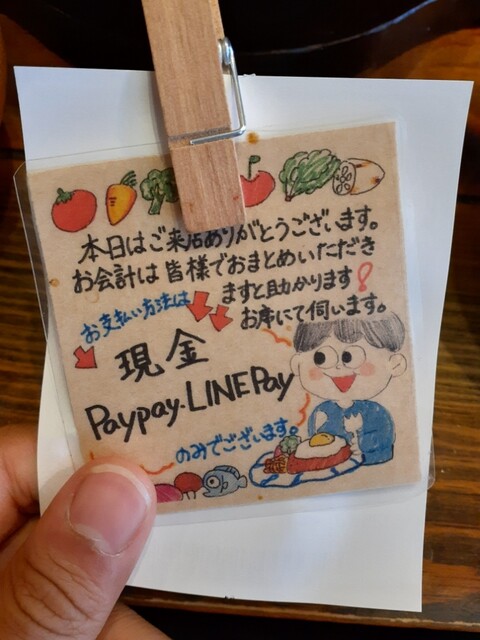 本日はご来店ありがとうございます。
お会計は皆様でおまとめいただき
ますと助かります!
お支払い方法は
お席にて伺います。
現金
Paypay・LINEPay
のみでございます。